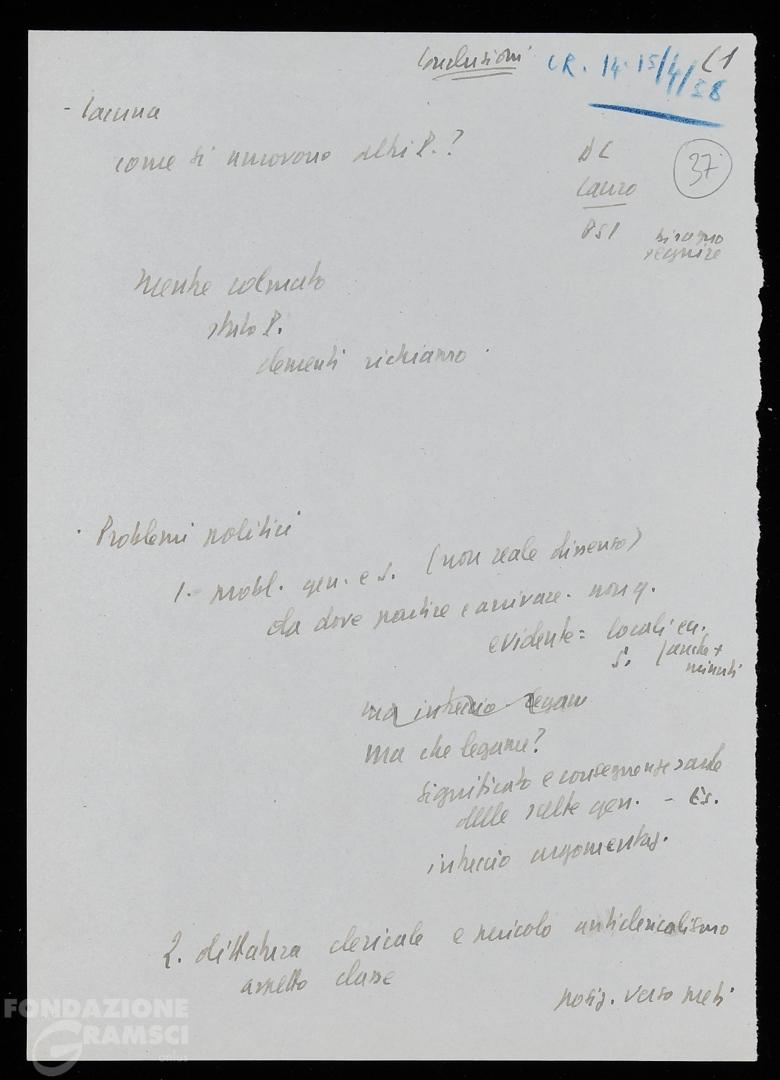 Conclusioni CR. 14-15/4/58 C1
37
- lacuna
come si muovono altri P.?
DC
Lauro
PSI bisogna
seguire
mentre colmato
stato P.
elementi richiamo.
- Problemi politici
1. probl. gen. e s. (non reale dissenso)
da dove partire e arrivare. non q.
evidente = locali ecc.
s. (anche +
minuti
ma intreccio legam
ma che legame?
significato e conseguenze
delle scelte gen. - Es.
intreccio argomentaz.
2. dittatura clericale e pericolo anticlericalismo
aspetto classe
posiz. verso preti
FONDAZIONE
GRAMSCI
onlus